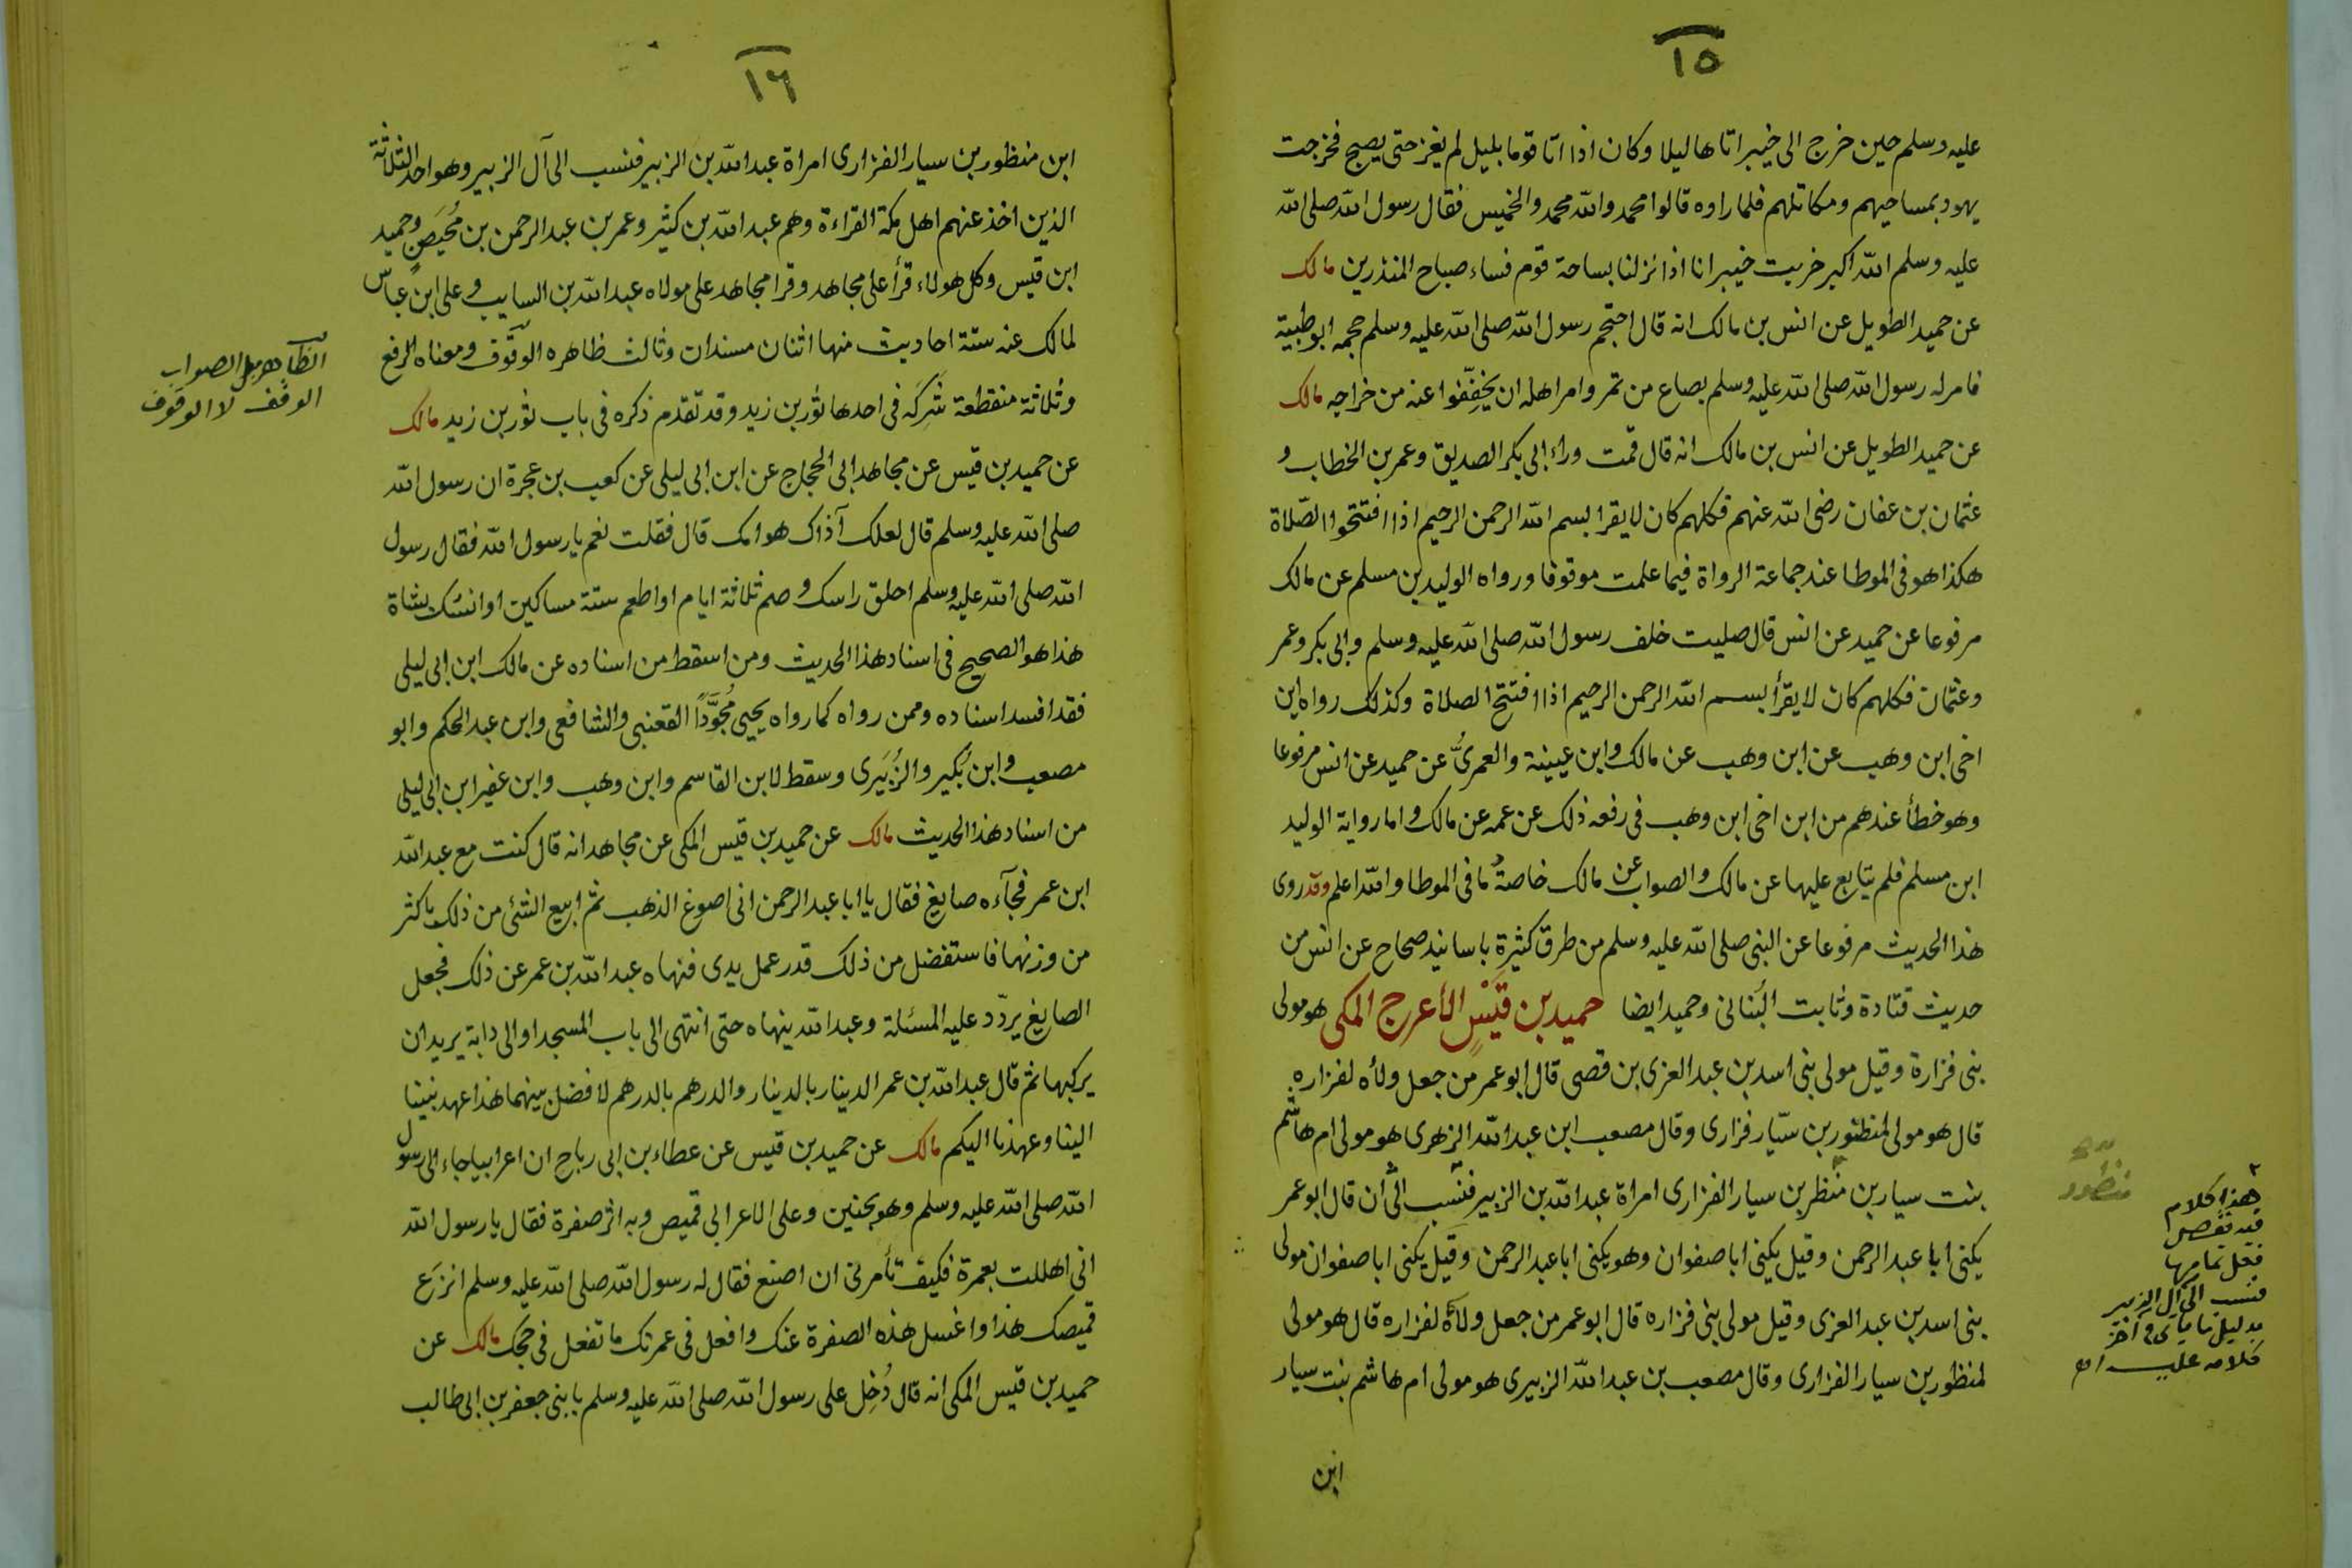 ١٥
عليه وسلم حين خرج الى خيبر اتاها ليلا وكان اذا اتا قوما بليل لم يغز حتى يصبح فخرجت
يهود بمساحيهم ومكاتلهم فلما راوه قالوا محمد والله محمد والخميس فقال رسول الله صلى الله
عليه وسلم الله اكبر خربت خيبر انا اذا نزلنا بساحة قوم فساء صباح المنذرين مالك
عن حميد الطويل عن انس بن مالك انه قال احتجم رسول الله صلى الله عليه وسلم حجمه ابو طيبة
فامر له رسول الله صلى الله عليه وسلم بصاع من تمر وامر اهله ان يخفِّفوا عنه من خراجه مالك
عن حميد الطويل عن انس بن مالك انه قال قمت وراء ابى بكر الصديق وعمر بن الخطاب و
عثمان بن عفان رضى الله عنهم فكلهم كان لا يقرا بسم الله الرحمن الرحيم اذا افتتحوا الصّلاة
هكذا هو فى الموطا عند جماعة الرواة فيما علمت موقوفا ورواه الوليد بن مسلم عن مالك
مرفوعا عن حميد عن انس قال صليت خلف رسول الله صلى الله عليه وسلم وابى بكر وعمر
وعثمان فكلهم كان لا يقرأ بسم الله الرحمن الرحيم اذا افتتح الصلاة وكذلك رواه ابن
اخى ابن وهب عن ابن وهب عن مالك وابن عيينة والعمرىُّ عن حميد عن انس مرفوعا
وهو خطأ عندهم من ابن اخى ابن وهب فى رفعه ذلك عن عمه عن مالك واما رواية الوليد
ابن مسلم فلم يتابع عليها عن مالك والصواب عن مالك خاصةً ما فى الموطا والله اعلم وقد روى
هذا الحديث مرفوعا عن النبى صلى الله عليه وسلم من طرق كثيرة باسانيد صحاح عن انس من
حديث قتادة وثابت البُنانى وحميد ايضا حميد بن قَيْسٍ الأعرج المكى هو مولى
بنى فزارة وقيل مولى بنى اسد بن عبد العزى بن قصى قال ابو عمر من جعل ولأه لفزاره
قال هو مولى لمنظور بن سيّار فزارى وقال مصعب ابن عبد الله الزهرى هو مولى ام هاشم
بنت سيار بن منظر بن سيار الفزارى امراة عبد الله بن الزبير فنسب الى ان قال ابو عمر
يكنى ابا عبد الرحمن وقيل يكنى ابا صفوان وهو يكنى ابا عبد الرحمن وقيل يكنى ابا صفوان مولى
بنى اسد بن عبد العزى وقيل مولى بنى فزاره قال ابو عمر من جعل ولأهٔ لفزاره قال هو مولى
لمنظور بن سيار الفزارى وقال مصعب بن عبد الله الزبيرى هو مولى ام هاشم بنت سيار
ابن
منظور
هذا كلام
فيه نقص
فلعل تمامها
فنسب الى آل الزبير
بدليل ما يأتى فى آخر
كلامه عليه
١٦
ابن منظور بن سيار الفزارى امراة عبد الله بن الزبير فنسب الى آل الزبير وهو احد الثلاثة
الذين اخذ عنهم اهل مكة القراءة وهم عبد الله بن كثير وعمر بن عبد الرحمن بن مُحَيصَنٍ وحميد
ابن قيس وكل هولاء قرأ على مجاهد وقرا مجاهد على مولاه عبد الله بن السايب وعلى ابن عباس
لمالك عنه ستة احاديث منها اثنان مسندان وثالث ظاهره الوقوف ومعناه الرفع
وثلاثة منقطعة شَرِكَه فى احدها ثور بن زيد وقد تقدم ذكره فى باب ثور بن زيد مالك
عن حميد بن قيس عن مجاهد ابى الحجاج عن ابن ابى ليلى عن كعب بن عجرة ان رسول الله
صلى الله عليه وسلم قال لعلك آذاك هوامك قال فقلت نعم يا رسول الله فقال رسول
الله صلى الله عليه وسلم احلق راسك وصم ثلاثة ايام او اطعم ستة مساكين او انسك بشاة
هذا هو الصحيح فى اسناد هذا الحديث ومن اسقط من اسناده عن مالك ابن ابى ليلى
فقد افسد اسناده وممن رواه كما رواه يحيى مُجوَّدًا القعنبى والشافعى وابن عبد الحكم وابو
مصعب وابن بُكير والزُّبَيرى وسقط لابن القاسم وابن وهب وابن عفير ابن ابى ليلى
من اسناد هذا الحديث مالك عن حميد بن قيس المكى عن مجاهد انه قال كنت مع عبد الله
ابن عمر فجآءه صايغ فقال يا ابا عبد الرحمن انى اصوغ الذهب ثم ابيع الشئ من ذلك باكثر
من وزنها فاستفضل من ذلك قدر عمل يدى فنهاه عبد الله بن عمر عن ذلك فجعل
الصايغ يردّد عليه المسئلة وعبد الله ينهاه حتى انتهى الى باب المسجد او الى دابة يريد ان
يركبها ثم قال عبد الله بن عمر الدينار بالدينار والدرهم بالدرهم لا فضل بينهما هذا عهد نبينا
الينا وعهدنا اليكم مالك عن حميد بن قيس عن عطاء بن ابى رباح ان اعرابيا جاء الى رسول
الله صلى الله عليه وسلم وهو بحنين وعلى الاعرابى قميص وبه اثر صفرة فقال يا رسول الله
انى اهللت بعمرة فكيف تأمرنى ان اصنع فقال له رسول الله صلى الله عليه وسلم انزَع
قميصك هذا واغسل هذه الصفرة عنك وافعل فى عمرتك ما تفعل فى حجك مالك عن
حميد بن قيس المكى انه قال دُخِل على رسول الله صلى الله عليه وسلم بابنى جعفر بن ابى طالب
الظاهر بل الصواب
الوقف لا الوقوف